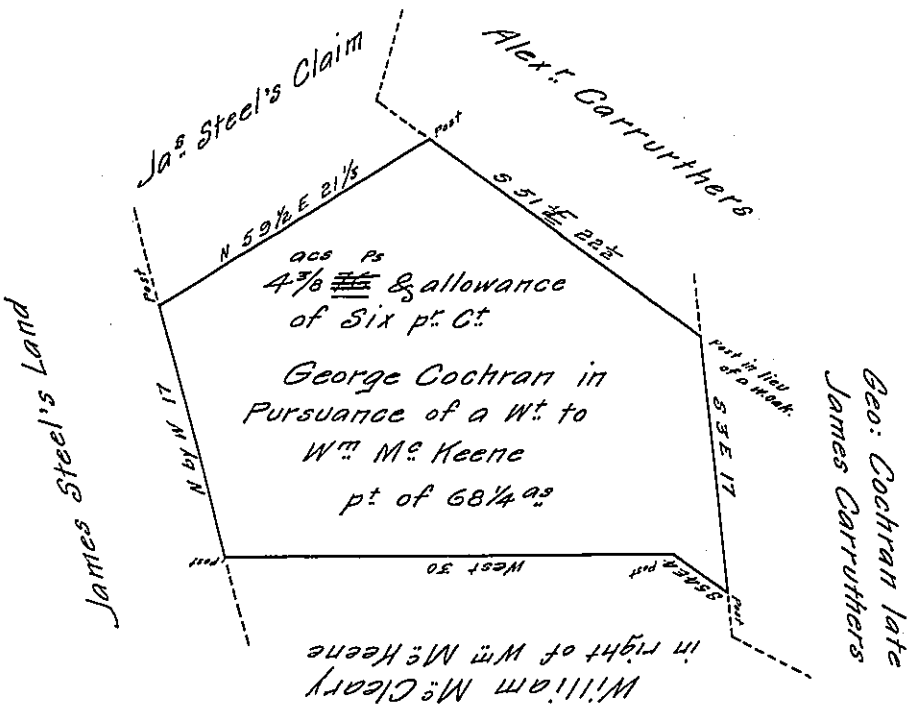 Jaˢ Steel's Claim
Alexʳ Carrurthers
Post
N 59½ E 21⅕
S 51½ E 22½
acs Ps
4⅜ & allowance
of Six pʳ Cᵗ
George Cochran in
Pursuance of a Wᵗ to
Wᵐ Mᶜ Keene
pᵗ of 68¼ ᵃˢ
Post
James Steel's Land
N by W 17
Post in lieu
of a w.oak.
S 3 E 17
Geo: Cochran late
James Carruthers
Post
West 30
Post
Post
William MᶜCleary
in right of Wᵐ MᶜKeene